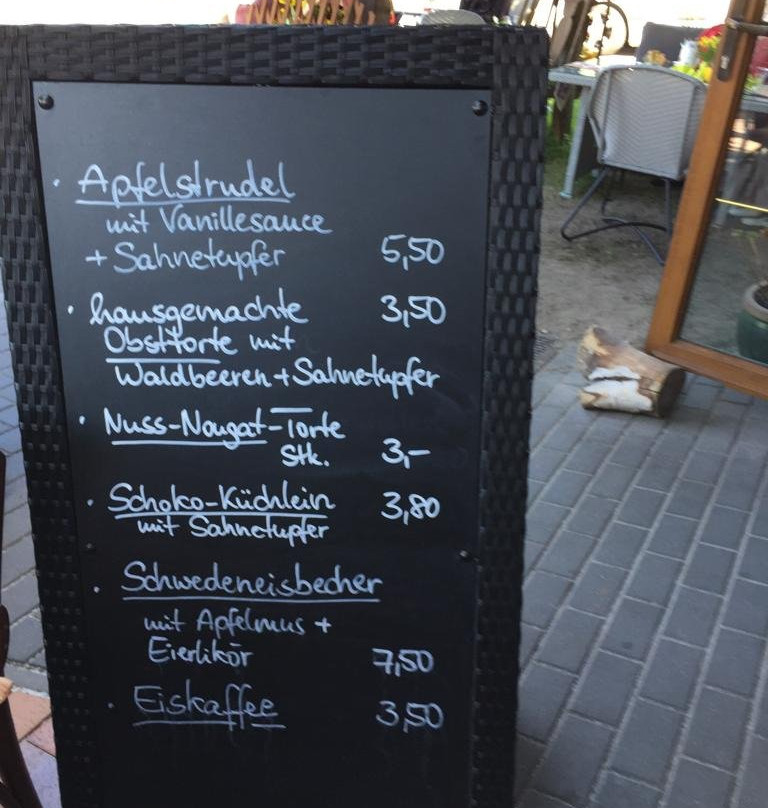 · Apfelstrudel
mit Vanillesauce
+ Sahnetupfer 5,50
· hausgemachte 3,50
Obsttorte mit
Waldbeeren + Sahnetupfer
· Nuss-Nougat-Torte
Stk. 3,-
· Schoko-Küchlein 3,80
mit Sahnetupfer
· Schwedeneisbecher
mit Apfelmus +
Eierlikör 7,50
· Eiskaffee 3,50